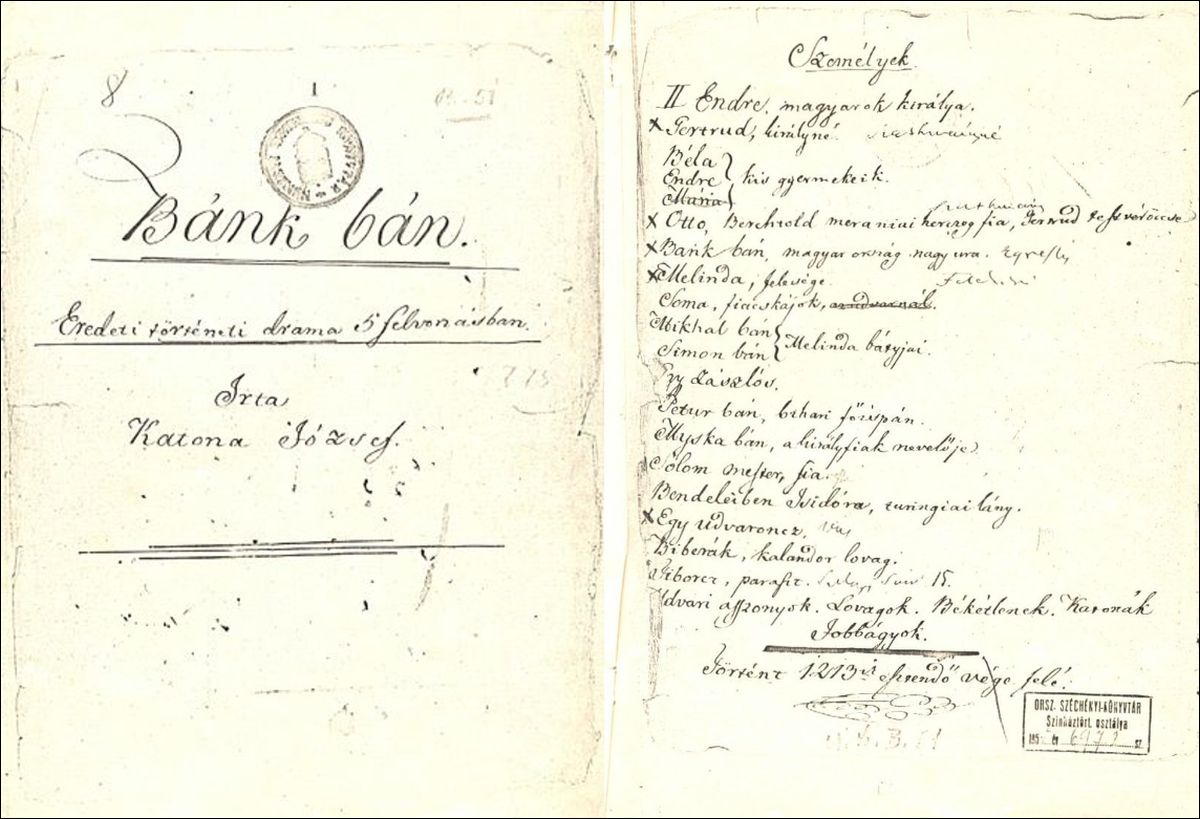 8
1
Bánk bán.
Eredeti történeti dráma 5 felvonásban.
Irta
Katona József.
Személyek
II Endre, magyarok királya.
x Gertrud, királyné.
Béla
Endre } kis gyermekeik.
Mária
x Otto, Berchtold meraniai herczeg fia, Gertrud testvéröccse
x Bánk bán, magyar ország nagy ura.
x Melinda, felesége.
Soma, fiacskájok, az udvarnál.
Mikhál bán
Simon bán } Melinda bátyjai.
Egy zászlós.
Petur bán, bihari főispán.
Myska bán, a királyfiak nevelője.
Solom mester, fia.
Bendeleiben Isidóra, turingiai lány.
x Egy udvaroncz.
Biberák, kalandor lovag.
Tiborcz, paraszt. 15.
Udvari asszonyok. Lovagok. Békétlenek. Katonák
Jobbágyok.
Történt 1213ik esztendő vége felé.
ORSZ. SZÉCHÉNYI-KÖNYVTÁR
Színháztört. osztálya
195 év 6972 sz.